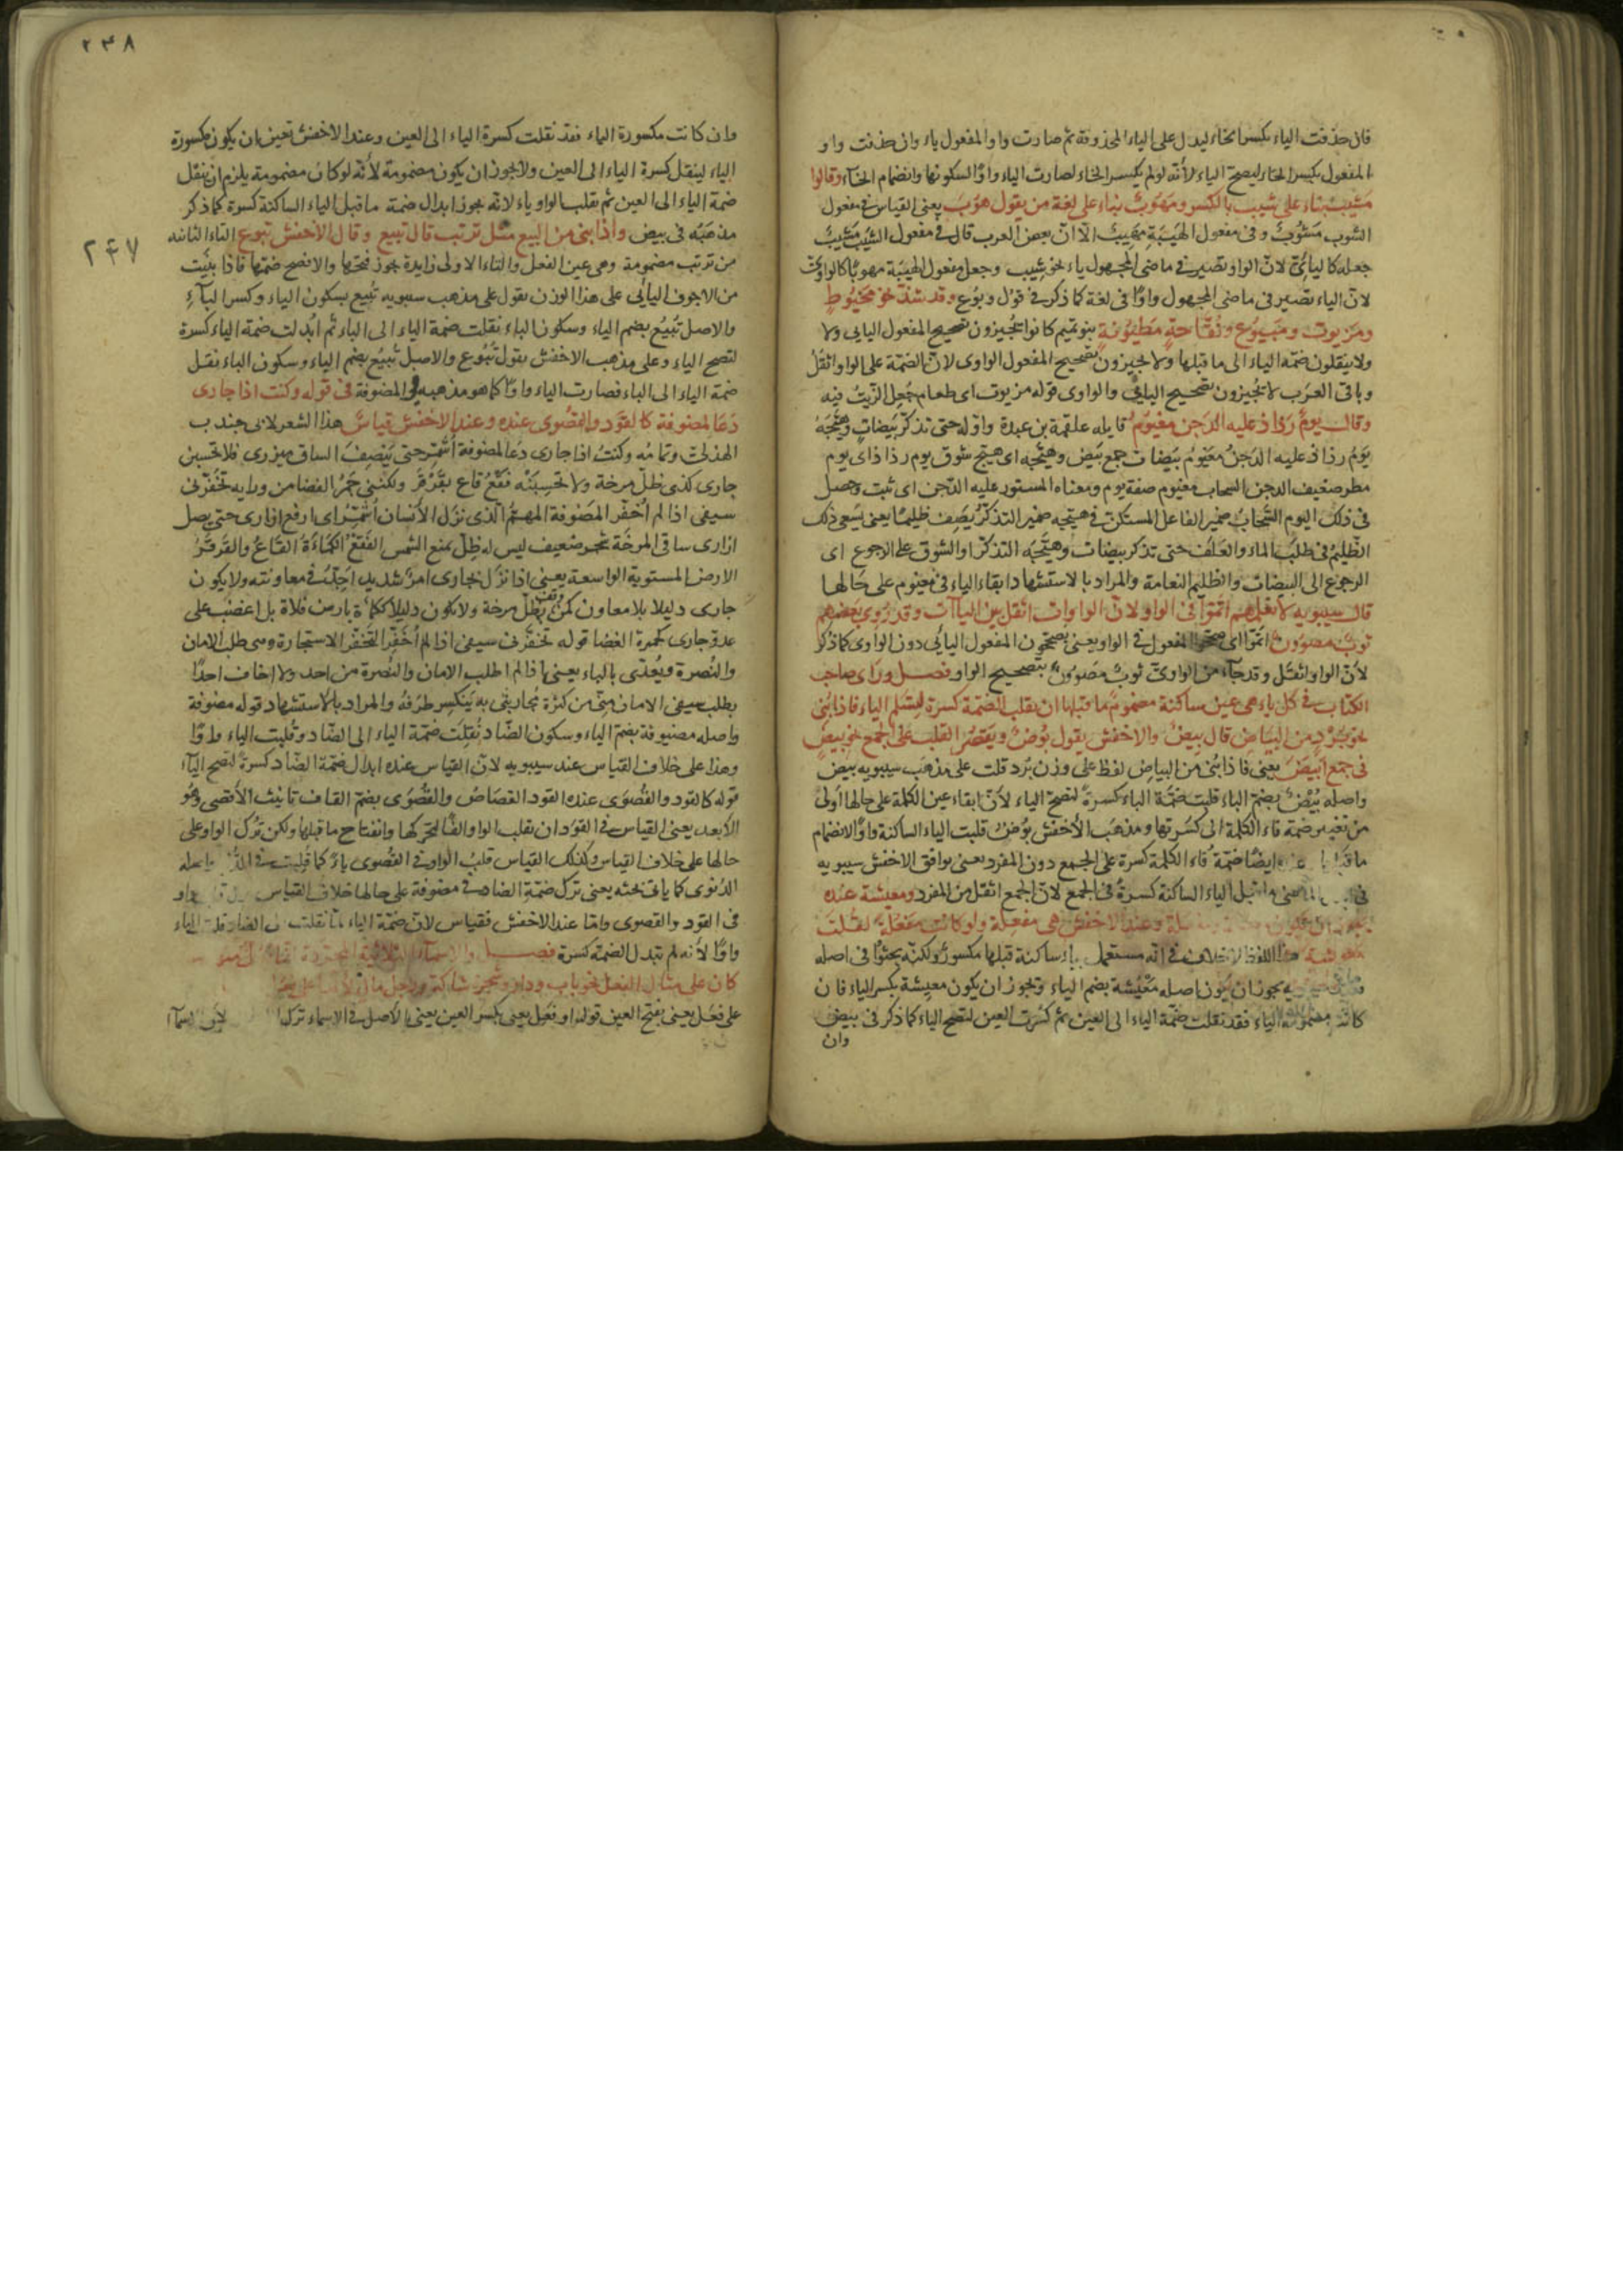 فان حذفت الياء بكسر الخاء ليدل على الياء المحذوفة ثم صارت واو المفعول ياء وان حذفت واو
المفعول بكسر الخاء ليصح الياء لأنه لو لم يكسر الخاء لصارت الياء واوًا لسكونها وانضمام الخاء وقالوا
مشيب بناء على شيب بالكسر ومهوب بناء على لغة من يقول هوب يعنى القياس فى مفعول
الشوب مشوب وفى مفعول الهيبة مهيب الّا انّ بعض العرب قال فى مفعول الشيب مشيب
جعله كاليائى لانّ الواو تصير فى ماضى المجهول ياء نحو شيب وجعل مفعول الهيبة مهوبًا كالواوى
لانّ الياء تصير فى ماضى المجهول واوًا فى لغة كما ذكر فى قول وبوع وقد شذّ نحو مخيوط
ومزيوت ومبيوع وتفّاحة مطيوبة بنو تميم كانوا يجيزون تصحيح المفعول اليايى ولا
ولا ينقلون ضمّة الياء الى ما قبلها ولا يجيزون تصحيح المفعول الواوى لانّ الضمّة على الواو اثقل
وباقى العرب لا يجيزون تصحيح اليايى والواوى قوله مزيوت اى طعام جعل الزيت فيه
وقال يوم رذاذ عليه الدجن مغيوم قايله علقمة بن عبدة واوّله حتى تذكّر بيضات وهيّجه
يوم رذاذ عليه الدجن مغيوم بيضات جمع بيض وهيّجه اى هيّج شوق يوم رذاذ اى يوم
مطر ضعيف الدجن السحاب مغيوم صفة يوم ومعناه المستور عليه الدجن اى ثبت وحصل
فى ذلك اليوم السّحاب ضمير الفاعل المستكن فى هيّجه ضمير التذكّر يصف ظليمًا يعنى يسعى ذلك
الظليم فى طلب الماء والعلف حتى تذكر بيضات وهيّجه التذكّر او الشوق على الرجوع اى
الرجوع الى البيضات والظليم النعامة والمراد بالاستشهاد ابقاء الياء فى مغيوم على حالها
قال سيبويه لا نعلمهم اتمّوا فى الواو لانّ الواوات اثقل من الياآت وقد روى بعضهم
ثوب مصوون اتمّوا اى صححوا المفعول فى الواو يعنى يصححون المفعول اليائى دون الواوى كما ذكر
لأنّ الواو اثقل وقد جاء من الواوى ثوب مصوون بتصحيح الواو فصل وراى صاحب
الكتاب فى كل ياء هى عين ساكنة مضموم ما قبلها ان يقلب الضمة كسرة لتسلم الياء فاذا بنى
نحو برد من البياض قال بيض والاخفش يقول بوض ويقصر القلب على الجمع نحو بيض
فى جمع ابيض يعنى فاذا بنى من البياض لفظ على وزن برد قلت على مذهب سيبويه بيض
واصله بيض بضم الباء قلبت ضمّة الباء كسرة لتصح الياء لأنّ ابقاء عين الكلمة على حالها اولى
من تغيير ضمّة فاء الكلمة الى كسرتها ومذهب الأخفش بوض قلبت الياء الساكنة واوًا لانضمام
ما قبلها ايضًا ضمّة فاء الكلمة كسرة على الجمع دون المفرد يعنى يوافق الاخفش سيبويه
قبل الياء الساكنة كسرة فى الجمع لانّ الجمع اثقل من المفرد ومعيشة عنده
وعند الاخفش هى مفعلة ولو كانت مفعلة لقلت
هذا اللفظ لا خلاف فى انّه مستعمل بياء ساكنة قبلها مكسور ولكنّه بحثوا فى اصله
يجوز ان يكون اصله معيشة بضم الياء ويجوز ان يكون معيشة بكسر الياء فان
كانت مضمومة الياء فقد نقلت ضمّة الياء الى العين ثم كسرت العين لتصح الياء كما ذكر فى بيض
وان
٢٣٨
٢٤٧
وان كانت مكسورة الياء فقد نقلت كسرة الياء الى العين وعند الاخفش تعين بان يكون مكسورة
الياء لينقل كسرة الياء الى العين ولا يجوز ان يكون مضمومة لأنّه لو كان مضمومة يلزم ان ينقل
ضمة الياء الى العين ثم تقلب الواو ياء لانّه يجوز ابدال ضمة ما قبل الياء الساكنة كسرة كما ذكر
مذهبه فى بيض واذا بنى من البيع مثل ترتب قال تبيع وقال الأخفش تبوع التاء الثانية
من ترتب مضمومة وهى عين الفعل والتاء الاولى زايدة يجوز فتحها والافصح ضمّها فاذا بنيت
من الاجوف اليائى على هذا الوزن تقول على مذهب سيبويه تبيع بسكون الياء وكسر الباء
والاصل تبيع بضم الياء وسكون الباء نقلت ضمة الياء الى الباء ثم ابدلت ضمة الباء كسرة
لتصح الياء وعلى مذهب الاخفش يقول تبوع والاصل تبيع بضم الياء وسكون الباء نقل
ضمة الياء الى الباء فصارت الياء واوًا كما هو مذهبه والمضوفة فى قوله وكنت اذا جارى
دعا لمضوفة كالقود والقصوى عنده وعند الاخفش قياس هذا الشعر لابى جندب
الهذلى وتمامه وكنت اذا جارى دعا لمضوفة أشمّر حتى ينصف الساق ميزرى فلا تحسبن
جارى لدى ظلّ مرخة ولا تحسبنه فقع قاع بقرقر ولكننى جمر الغضا من ورايه تخفّرنى
سيفى اذا لم أخفّر المضوفة المهمّ الّذى نزل الأنسان أشمّر اى ارفع ازارى حتى يصل
ازارى ساقى المرخة شجر ضعيف ليس له ظلّ يمنع الشمس الفقع الكماءة القاع والقرقر
الارض المستوية الواسعة يعنى اذا نزل بجارى امر شديد اجتهد فى معاونته ولا يكون
جارى ذليلا بلا معاون كمن وقف بظلّ مرخة ولا يكون ذليلا ككماة بارض فلاة بل اغضب على
عدو جارى كجمرة الغضا قوله تخفّرنى سيفى اذا لم أخفّر التخفّر الاستجارة وهى طلب الامان
والنصرة ويعدّى بالباء يعنى اذا لم اطلب الامان والنصرة من احد ولا اخاف احدًا
يطلب سيفى الامان منّى من كثرة محاربتى به ينكسر طرفه والمراد بالاستشهاد قوله مضوفة
واصله مضيوفة بضم الياء وسكون الضّاد نقلت ضمّة الياء الى الضّاد وقلبت الياء واوًا
وهذا على خلاف القياس عند سيبويه لانّ القياس عنده ابدال ضمّة الضّاد كسرة لتصح الياء
قوله كالقود والقصوى عنده القود القصاص والقصوى بضم القاف تانيث الأقصى وهو
الابعد يعنى القياس فى القود ان يقلب الواو الفًا لتحرّكها وانفتاح ما قبلها ولكن ترك الواو على
حالها على خلاف القياس وكذلك القياس قلب الواو فى القصوى ياء كما قلبت فى
الدنوى كما ياتى بحثه يعنى ترك ضمّة الضاد فى مضوفة على حالها خلاف القياس
فى القود والقصوى وامّا عند الاخفش فقياس لانّ ضمّة الياء لمّا نقلت الى الضاد قلبت الياء
واوًا لأنه لم تبدل الضمة كسرة فصل والاسماء الثلاثية المجردة
كان على مثال الفعل نحو باب ودار وشجرة شاكة ورجل مال
على فعل يعنى بفتح العين قوله او فعل يعنى بكسر العين يعنى الأصل فى الاسماء ترك